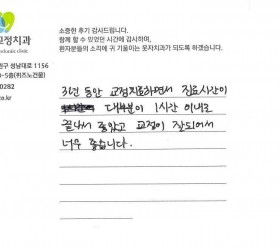 소중한 후기 감사드립니다.
함께 할 수 있었던 시간에 감사하며,
환자분들의 소리에 귀 기울이는 웃자치과가 되도록 하겠습니다.
교정치과
원구 성남대로 1156
0-5층(퀴즈노건물)
0282
co.kr
3년 동안 교정치료하면서 진료시간이
대부분이 1시간 이내로
끝나서 좋았고 교정이 잘되어서
너무 좋습니다.